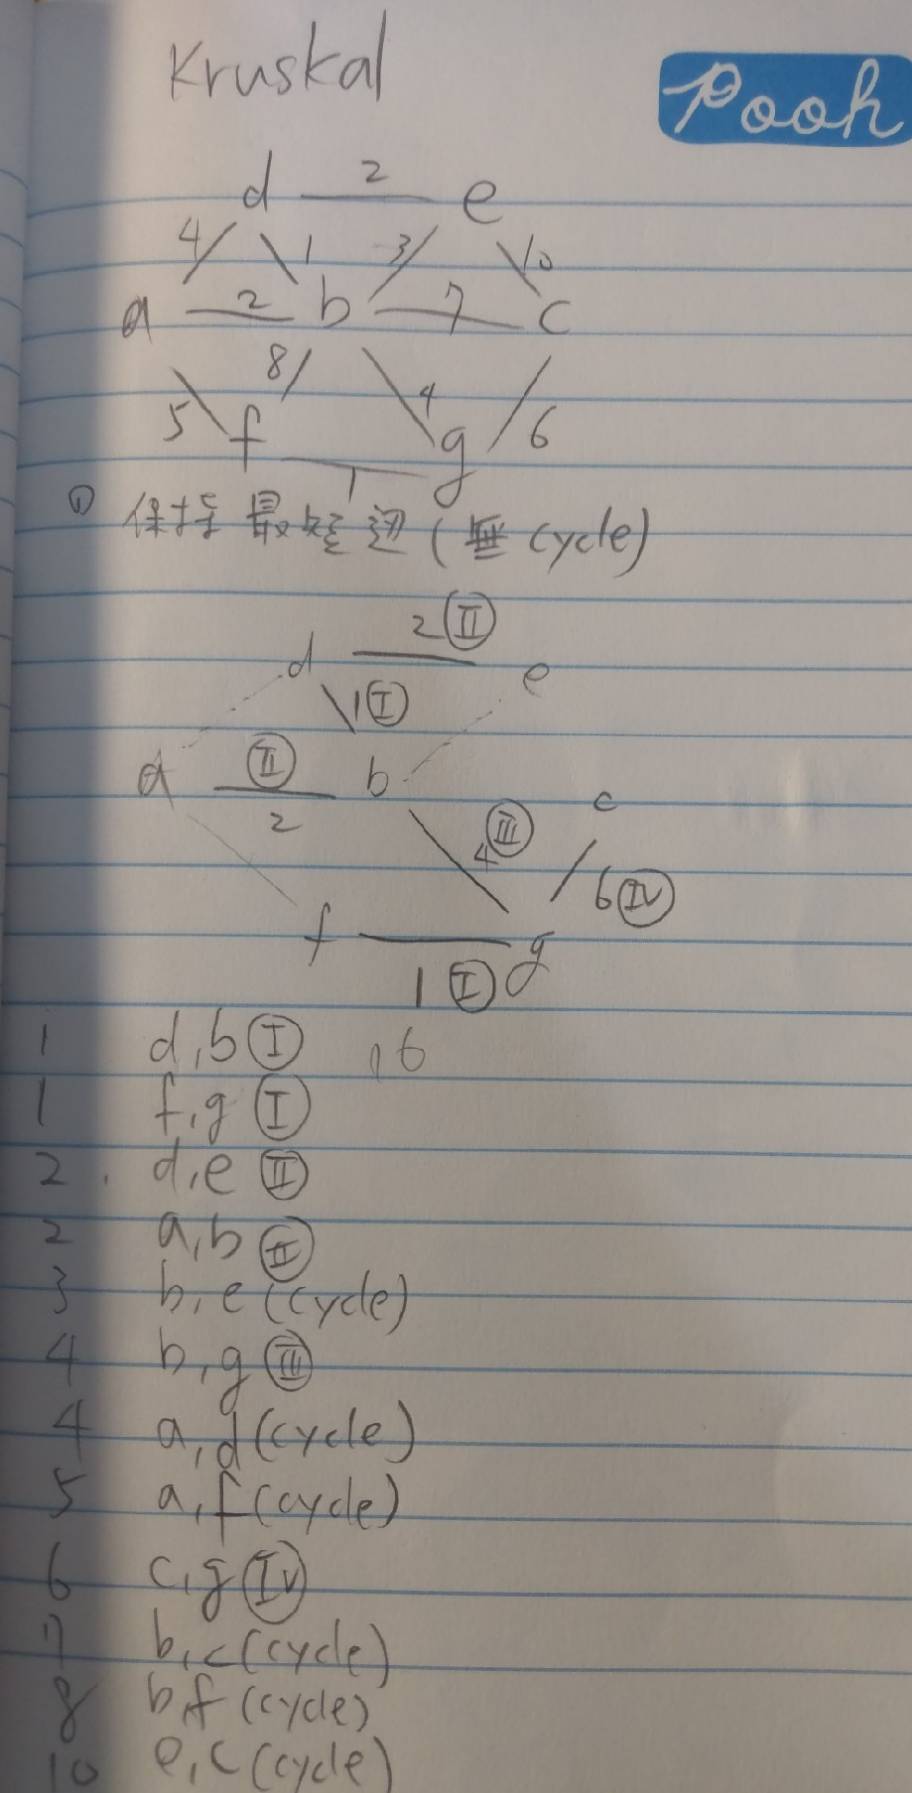 Kruskal
Pooh
d 2 e
4 1 3 10
a 2 b 7 c
8 4
5 f g 6
1
① 保持最短邊(無cycle)
2 Ⅱ
d e
1 Ⅰ
a Ⅱ b c
2 4 Ⅲ
6 Ⅳ
f g
1 Ⅰ
1 d,b Ⅰ 16
1 f,g Ⅰ
2. d,e Ⅱ
2 a,b Ⅱ
3 b,e (cycle)
4 b,g Ⅲ
4 a,d (cycle)
5 a,f (cycle)
6 c,g Ⅳ
7 b,c (cycle)
8 b,f (cycle)
10 e,c (cycle)